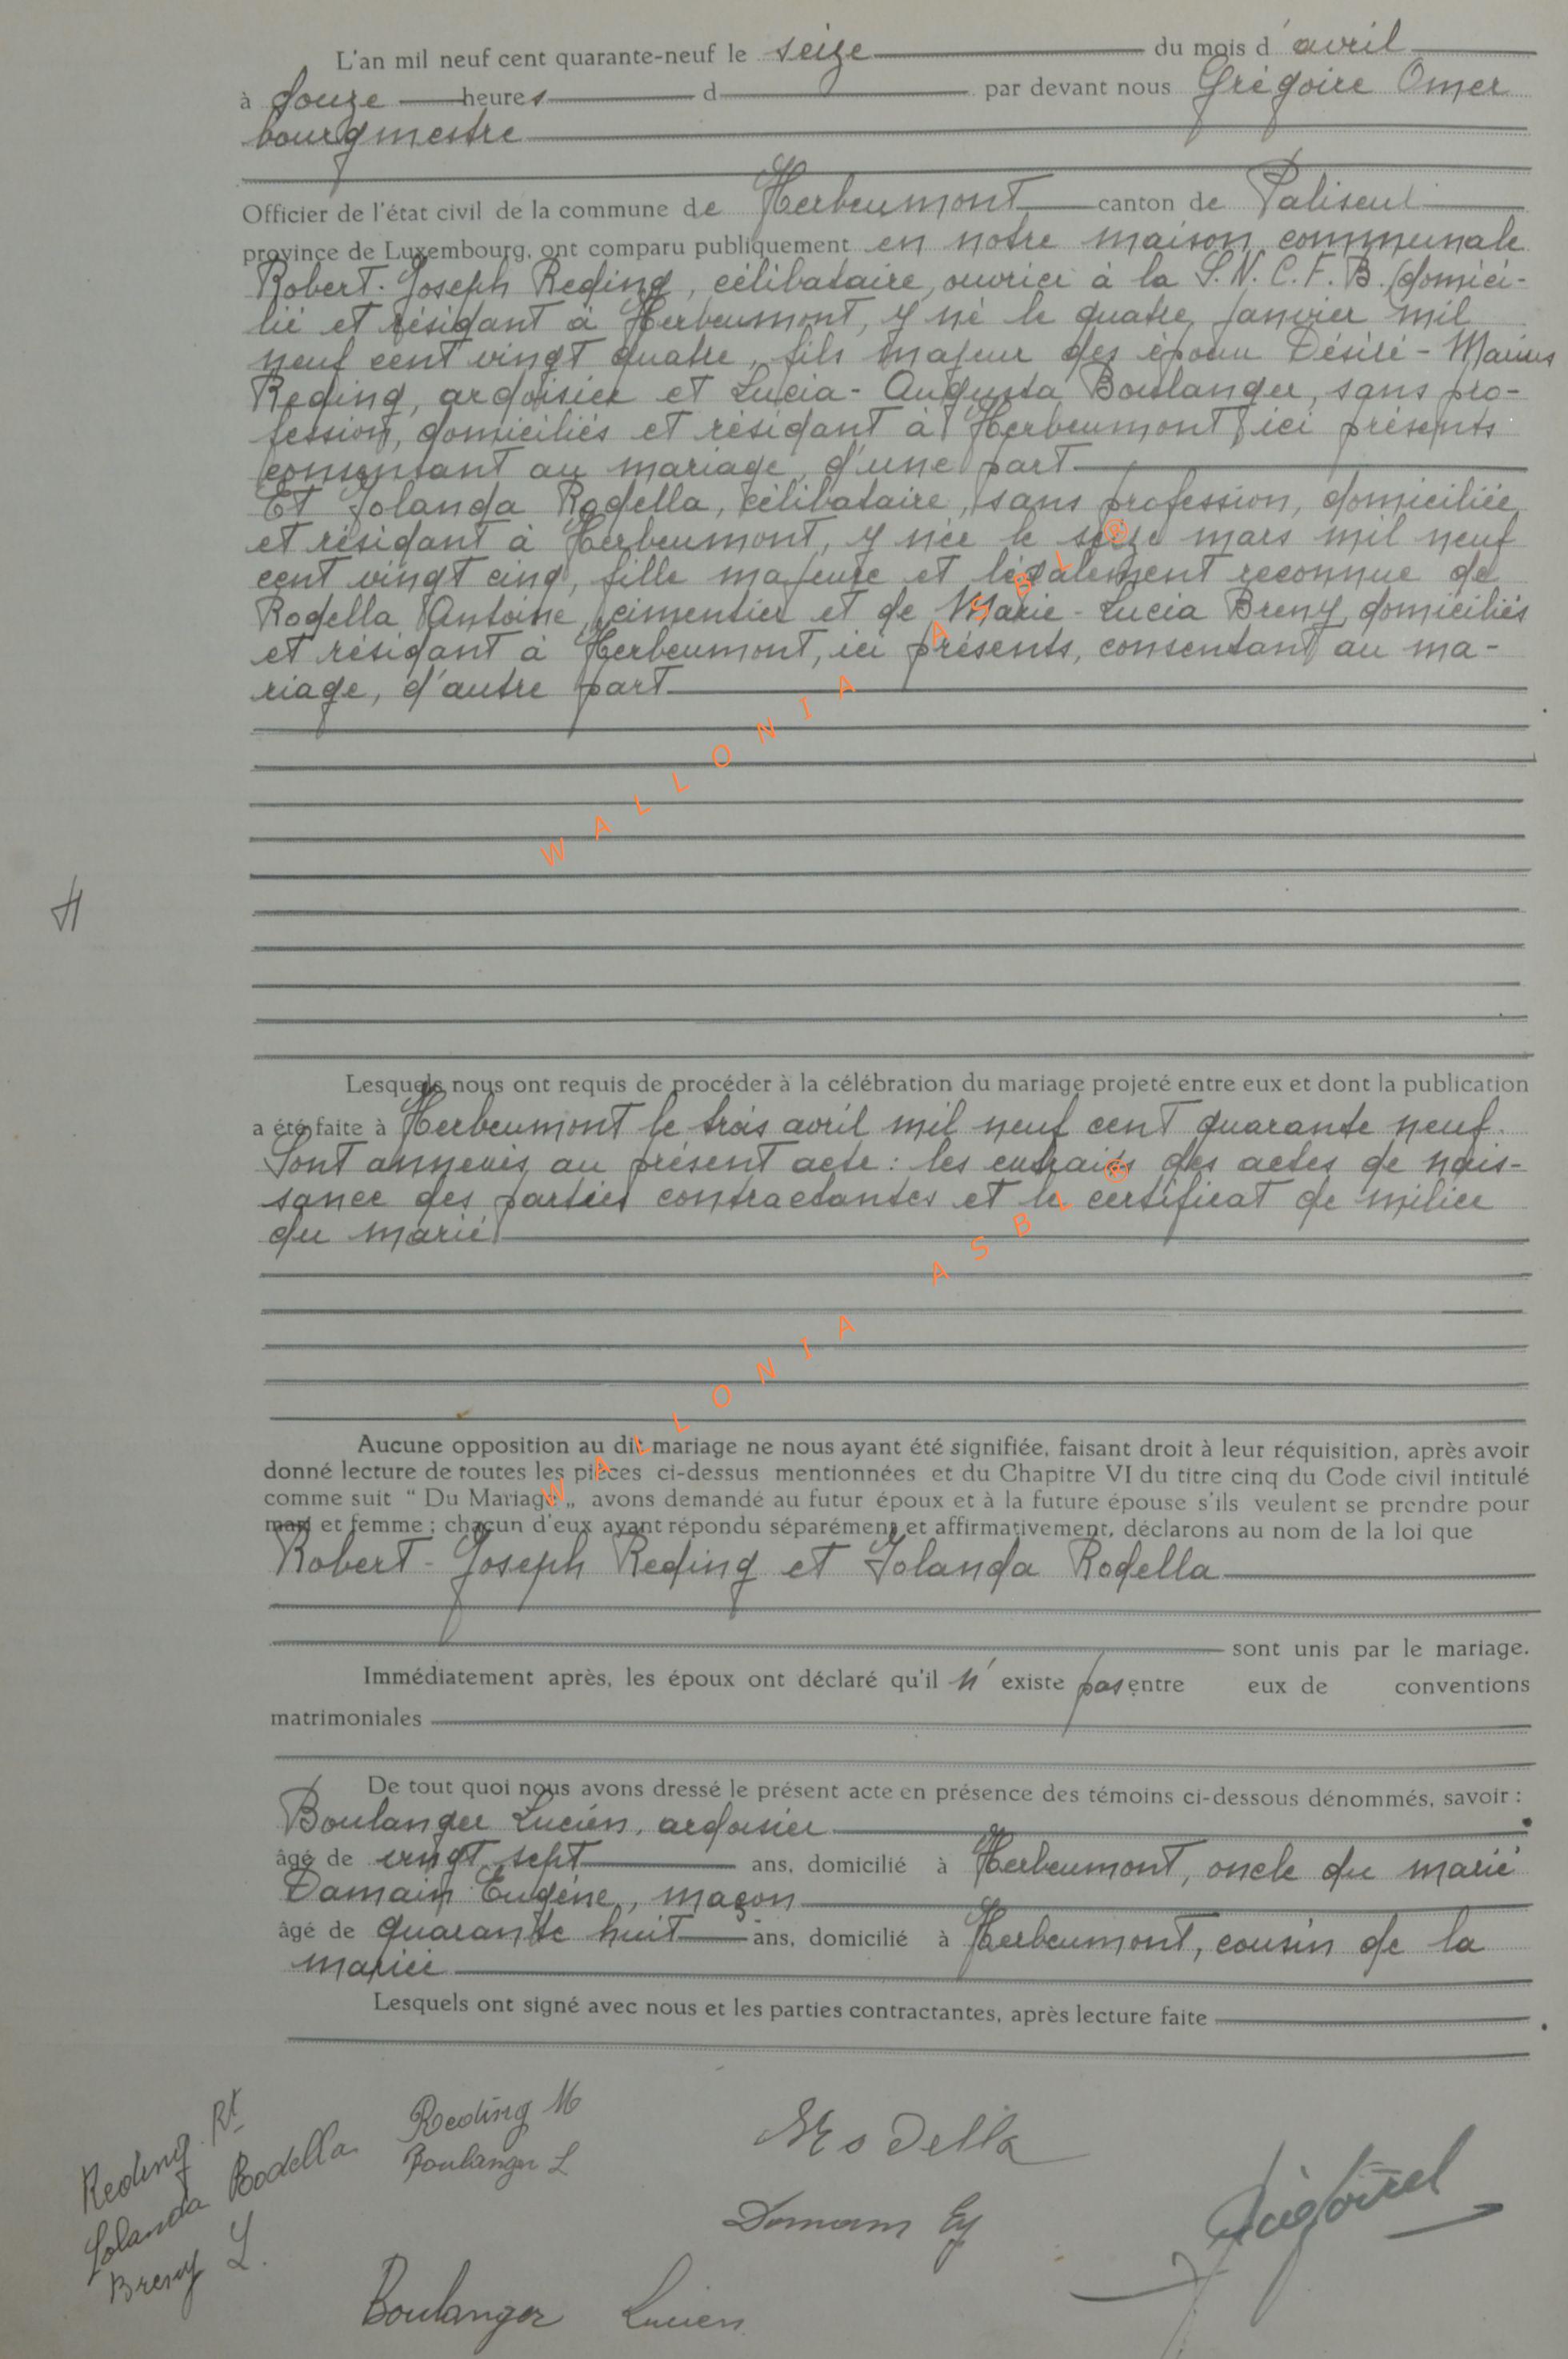 L'an mil neuf cent quarante-neuf le seize du mois d'avril
à douze heures d par devant nous Grégoire Omer
bourgmestre
Officier de l'état civil de la commune de Herbeumont canton de Paliseul
province de Luxembourg, ont comparu publiquement en notre maison communale
Robert-Joseph Reding, célibataire, ouvrier à la S.N.C.F.B. domici-
lié et résidant à Herbeumont, y né le quatre janvier mil
neuf cent vingt quatre, fils majeur des époux Désiré-Marius
Reding, ardoisier et Lucia-Augusta Boulanger, sans pro-
fession, domiciliés et résidant à Herbeumont, ici présents
consentant au mariage, d'une part
Et Jolanda Rodella, célibataire, sans profession, domiciliée
et résidant à Herbeumont, y née le seize mars mil neuf
cent vingt cinq, fille majeure et légalement reconnue de
Rodella Antoine, cimentier et de Marie-Lucia Breny, domiciliés
et résidant à Herbeumont, ici présents, consentant au ma-
riage, d'autre part
WALLONIA ASBL ®
Lesquels nous ont requis de procéder à la célébration du mariage projeté entre eux et dont la publication
a été faite à Herbeumont le trois avril mil neuf cent quarante neuf.
Sont annexés au présent acte : les extraits des actes de nais-
sance des parties contractantes et le certificat de milice
du marié
WALLONIA ASBL ®
Aucune opposition au dit mariage ne nous ayant été signifiée, faisant droit à leur réquisition, après avoir
donné lecture de toutes les pièces ci-dessus mentionnées et du Chapitre VI du titre cinq du Code civil intitulé
comme suit “ Du Mariage „ avons demandé au futur époux et à la future épouse s'ils veulent se prendre pour
mari et femme ; chacun d'eux ayant répondu séparément et affirmativement, déclarons au nom de la loi que
Robert-Joseph Reding et Jolanda Rodella
sont unis par le mariage.
Immédiatement après, les époux ont déclaré qu'il n'existe pas entre eux de conventions
matrimoniales
De tout quoi nous avons dressé le présent acte en présence des témoins ci-dessous dénommés, savoir :
Boulanger Lucien, ardoisier
âgé de vingt sept ans, domicilié à Herbeumont, oncle du marié
Damain Eugène, maçon
âgé de quarante huit ans, domicilié à Herbeumont, cousin de la
mariée
Lesquels ont signé avec nous et les parties contractantes, après lecture faite
Reding Rt
Jolanda Rodella
Breny L.
Reding M
Boulanger L
Rodella
Damain Eg
Boulanger Lucien